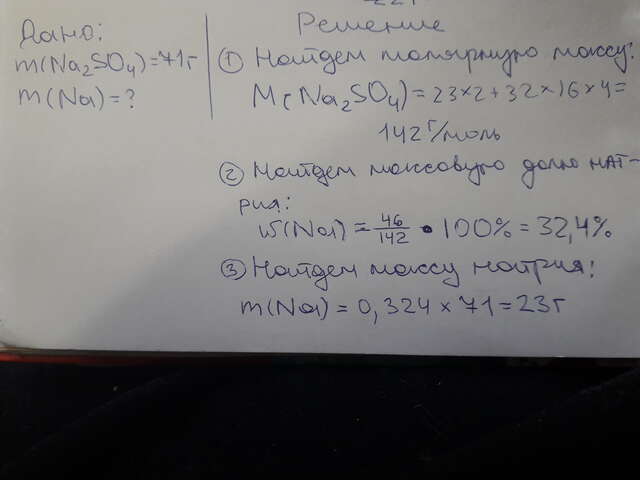 Решение
Дано:
m(Na₂SO₄)=71г
m(Na)=?
① Найдем молярную массу:
M(Na₂SO₄)=23×2+32×16×4=
142г/моль
② Найдем массовую долю нат-
рия:
ω(Na)=46/142•100%=32,4%
③ Найдем массу натрия:
m(Na)=0,324×71=23г